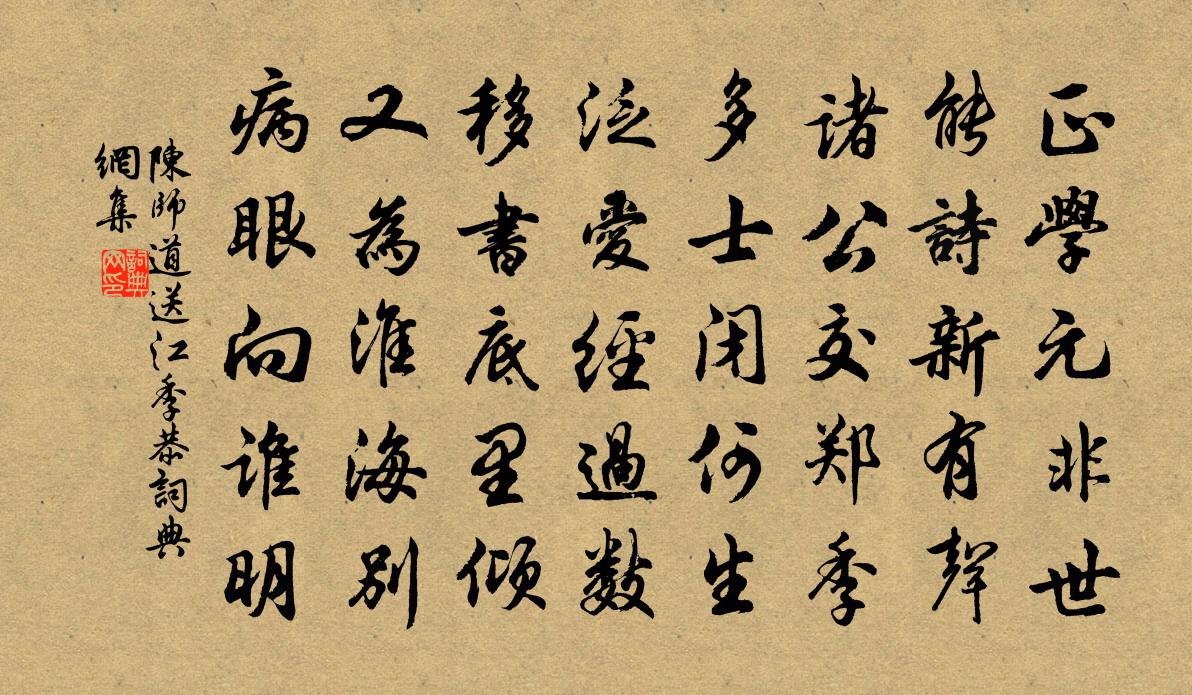 正學元非世
能詩新有聲
諸公交郑季
多士閉何生
泛愛經過數
移書底里傾
又為淮海別
病眼向誰明
陳師道送江季恭詞典
網集
詞典
网印